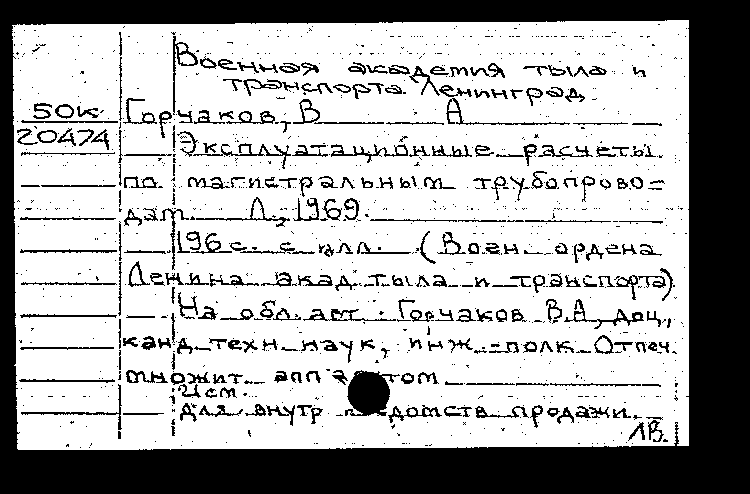 Военная академия тыла и
транспорта Ленинград
50к Горчаков, В А
20474 Эксплуатационные расчеты
по магистральным трубопрово=
дам. Л., 1969.
196 с. с илл. (Воен. ордена
Ленина акад тыла и транспорта)
На обл. авт. Горчаков В.А, доц.,
канд техн. наук, инж.-полк. Отпеч.
множит. аппаратом
21 см.
для внутр ведомств продажи.
1В.